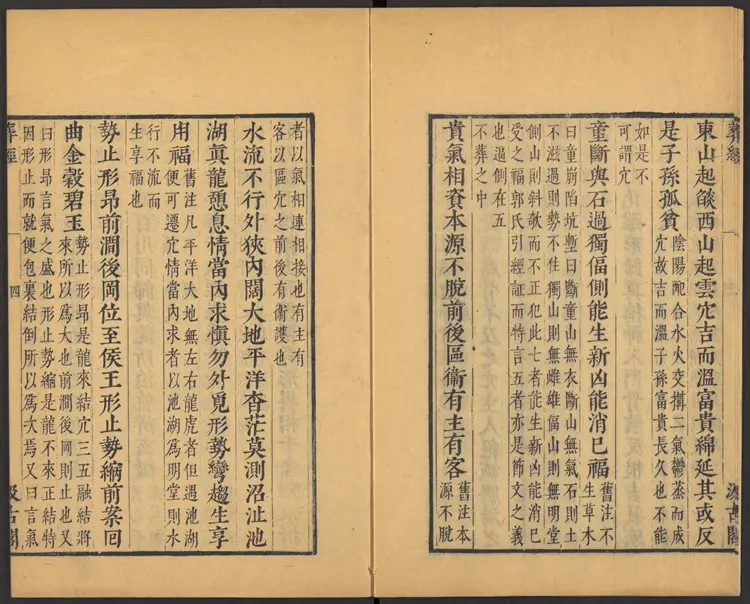 葬經
汲古閣
東山起燄西山起雲穴吉而溫富貴綿延其或反
是子孫孤貧
陰陽配合水火交搆二氣鬱蒸而成
穴故吉而溫子孫富貴長久也不能
如是不
可謂穴
童斷與石過獨偪側能生新凶能消已福
舊注不
生草木
曰童崩陷坑塹曰斷童山無衣斷山無氣石則土
不滋過則勢不住獨山則無雌雄偪山則無明堂
側山則斜欹而不正犯此七者能生新凶能消已
受之福郭氏引經証而特言五者亦是節文之義
也逼側在五
不葬之中
貴氣相資本源不脫前後區衞有主有客
舊注本
源不脫
者以氣相連相接也有主有
客以區穴之前後有衞護也
水流不行外狹內闊大地平洋杳茫莫測沼沚池
湖眞龍憩息情當內求愼勿外覓形勢彎趨生享
用福
舊注凡平洋大地無左右龍虎者但遇池湖
便可遷穴情當內求者以池湖爲明堂則水
行不流而
生享福也
勢止形昂前澗後岡位至侯王形止勢縮前案囘
曲金穀碧玉
勢止形昂是龍來結穴三五融結將
來所以爲大也前澗後岡則止也又
曰形昂言氣之盛也形止勢縮是龍不來正結特
因形止而就便包裹結倒所以爲次焉又曰言氣
葬經
四
汲古閣